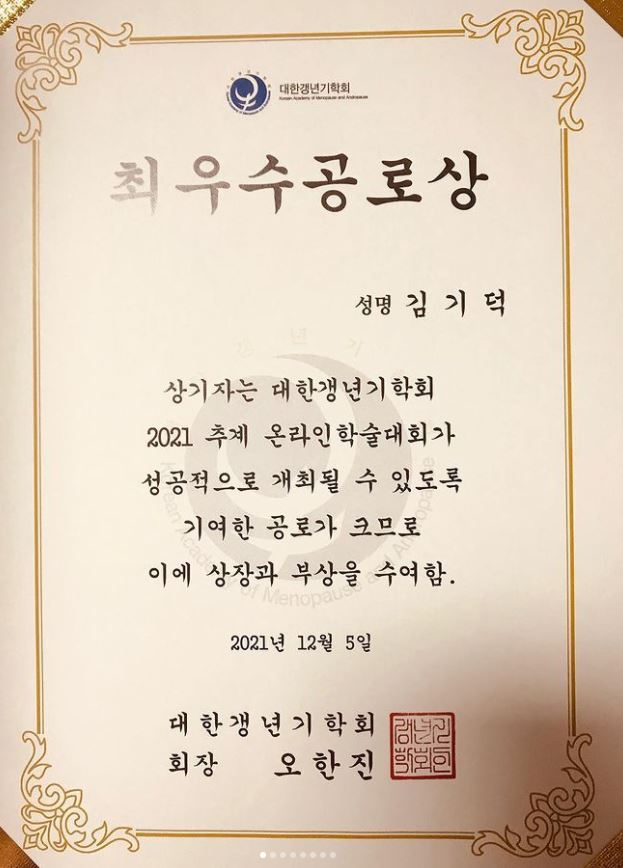 대한갱년기학회
Korean Academy of Menopause and Andropause
최우수공로상
성명 김 기 덕
상기자는 대한갱년기학회
2021 추계 온라인학술대회가
성공적으로 개최될 수 있도록
기여한 공로가 크므로
이에 상장과 부상을 수여함.
2021년 12월 5일
대한갱년기학회
회장 오한진